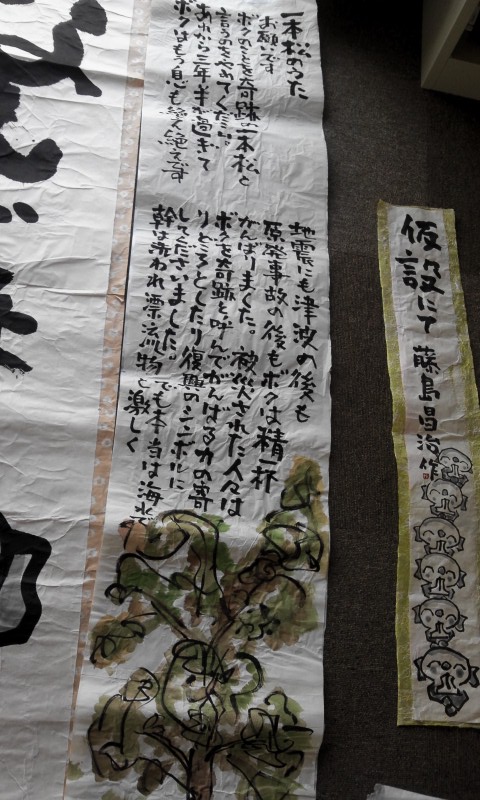 仮設にて 藤島昌治作
一本松のうた
お願いです
ボクのことを奇跡の一本松と
言うのをやめてください。
あれから三年半が過ぎて
ボクはもう息も絶え絶えです
地震にも津波の後も
原発事故の後もボクは精一杯
がんばりました。被災された人々は
ボクを奇跡と呼んでがんばる力の寄
りどころとしたり復興のシンボルに
してくださいました。
幹は洗われ漂流物でも本当は海水で
と激しく